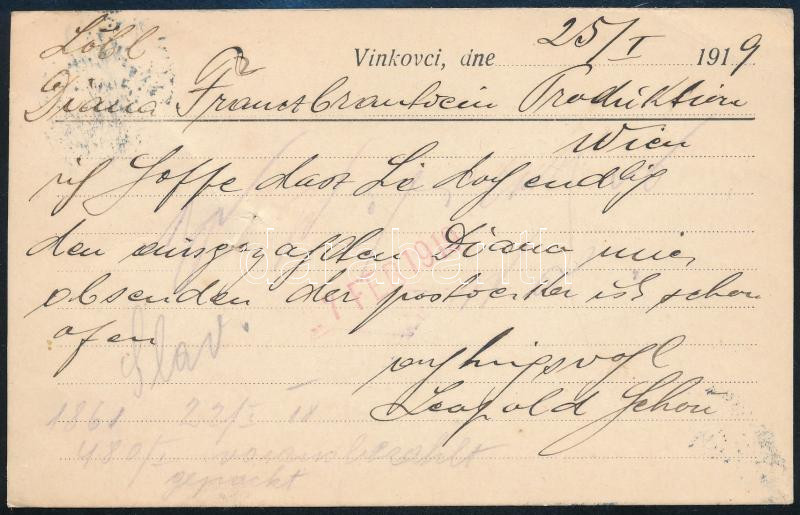 Löbl
Vinkovci, dne 25/I 1919
Diana Franczbrantwein Produktion
Wien
ich hoffe dasz Si doch endlig
den ausgezahlten Diana mier
absenden der postverker ist schon
ofen
achtungsvohl
Leopold Schön
7 FEB 1919
Slav.
1861 22/I 18
480/I vorausbezahlt
gepackt